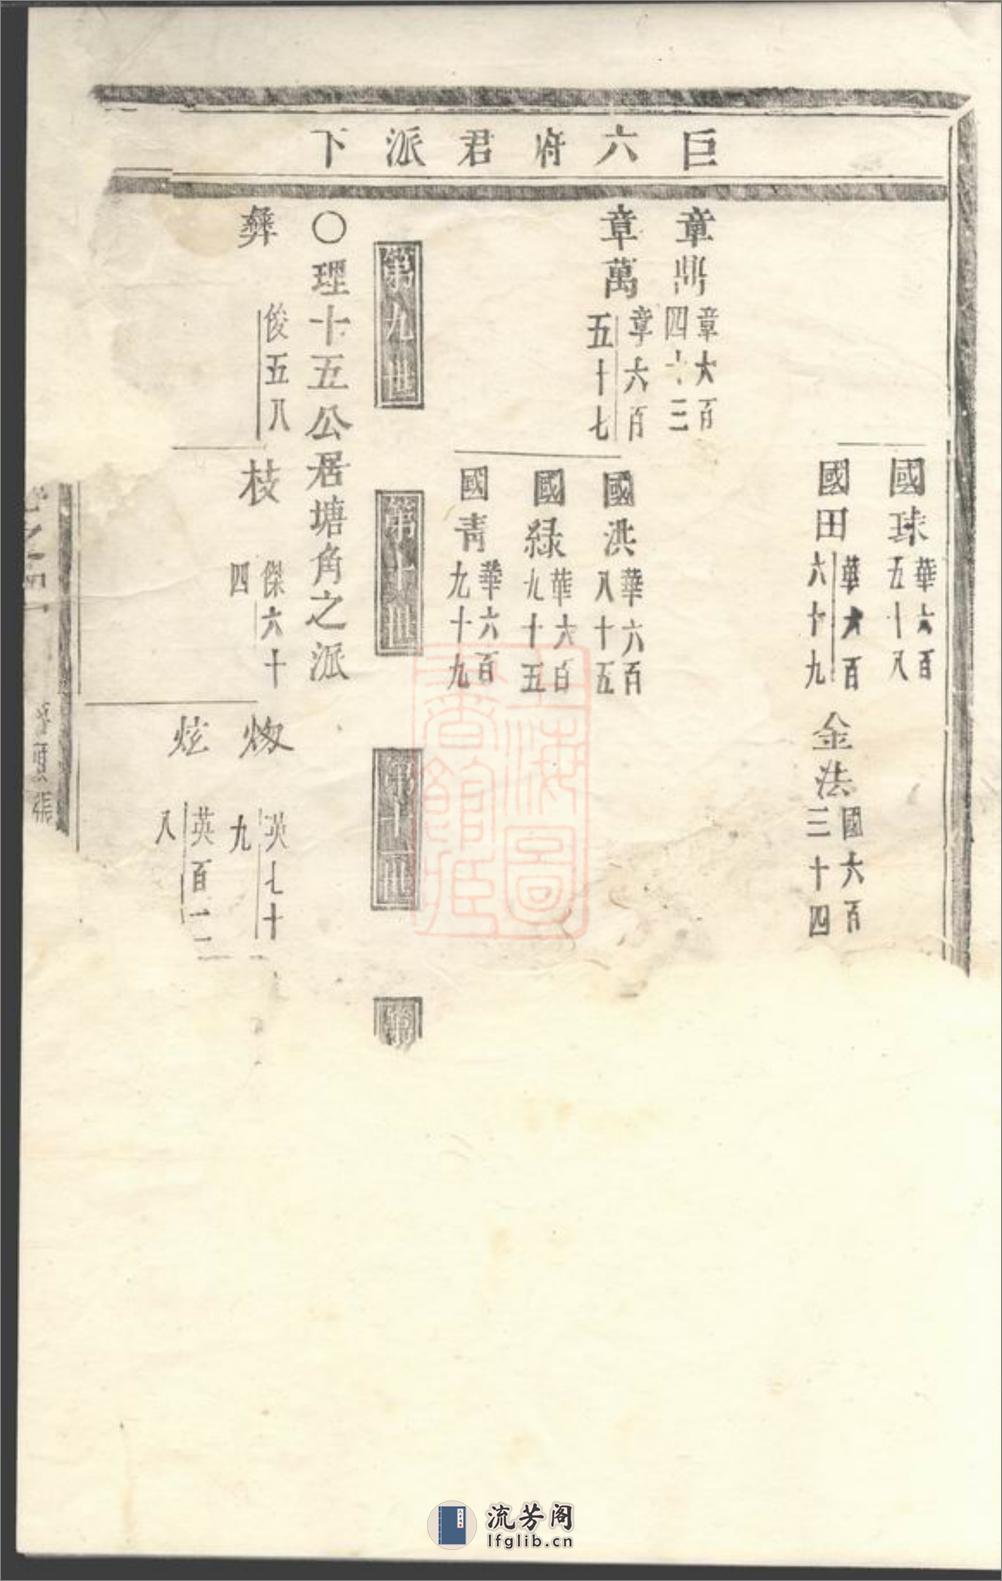 巨六府君派下
國球 華六百五十八
國田 華六百六十九
金法 國六百三十四
章鼎 章六百四十三
章萬 章六百五十七
國洪 華六百八十五
國綠 華六百九十五
國靑 華六百九十九
第九世
第十世
第十一世
第
〇理十五公居塘角之派
彝 俊五八
枝 傑六十四
英七十九
炫 英百二八
上海圖書館藏
流芳阁
lfglib.cn